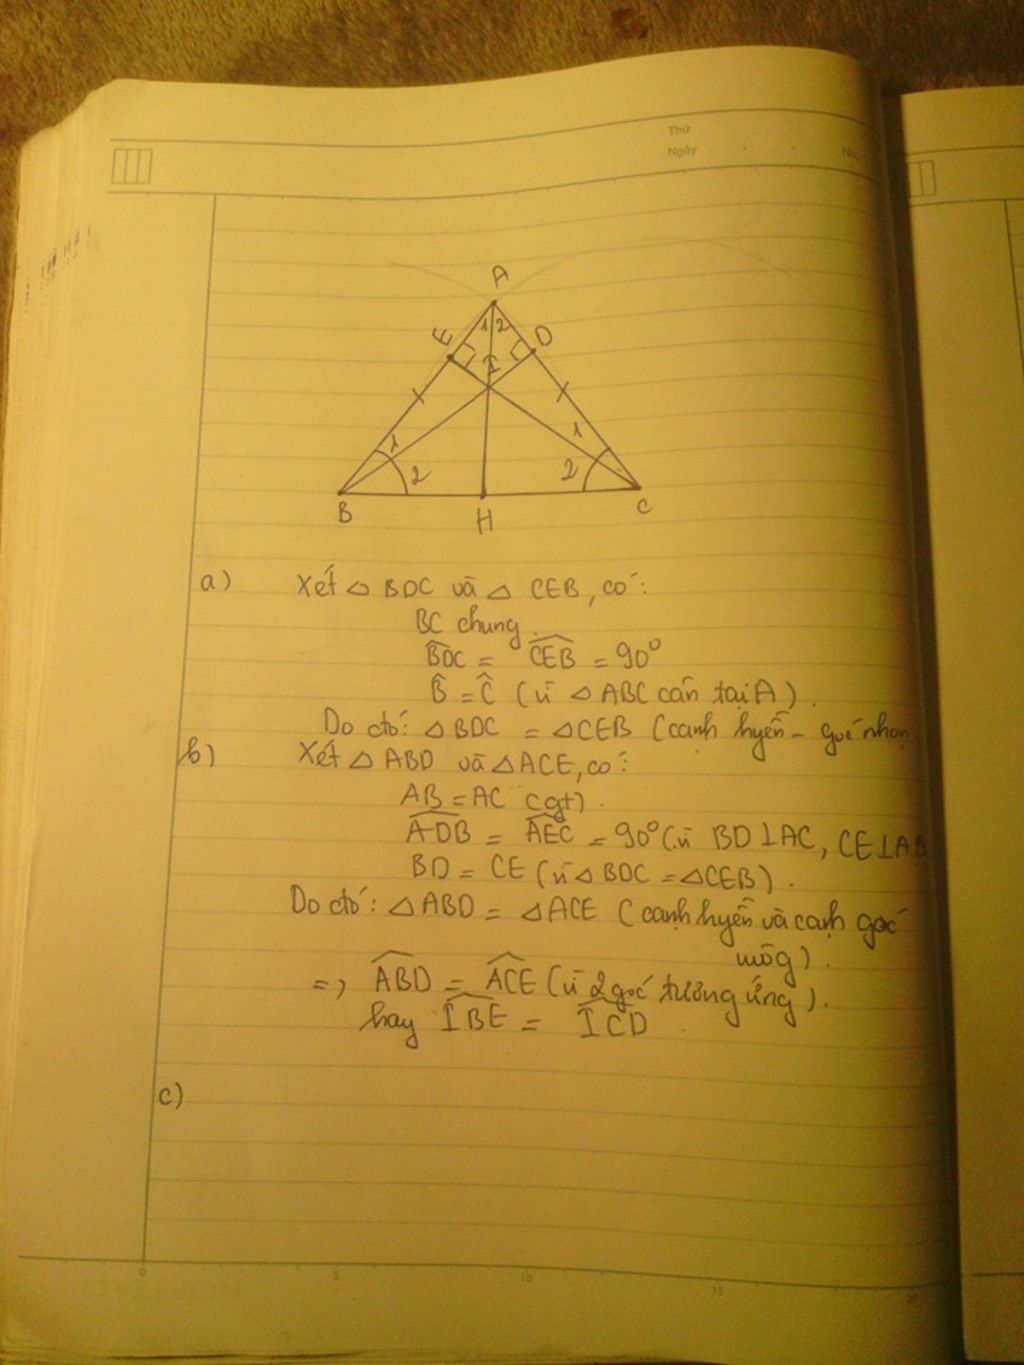 Thứ
Ngày
No.
A
E
1 2
D
I
1
2
1
2
B
H
C
a) Xét △ BDC và △ CEB, có:
BC chung.
BDC = CEB = 90°
B̂ = Ĉ (vì △ ABC cân tại A).
Do đó: △BDC = △CEB (cạnh huyền - góc nhọn
b) Xét △ ABD và △ACE, có:
AB = AC (gt).
ADB = AEC = 90° (vì BD ⊥ AC, CE ⊥ AB
BD = CE (vì △ BDC = △CEB).
Do đó: △ABD = △ACE (cạnh huyền và cạnh góc
vuông).
=> ABD = ACE (vì 2 góc tương ứng).
hay IBE = ICD
c)
0 5 10 15